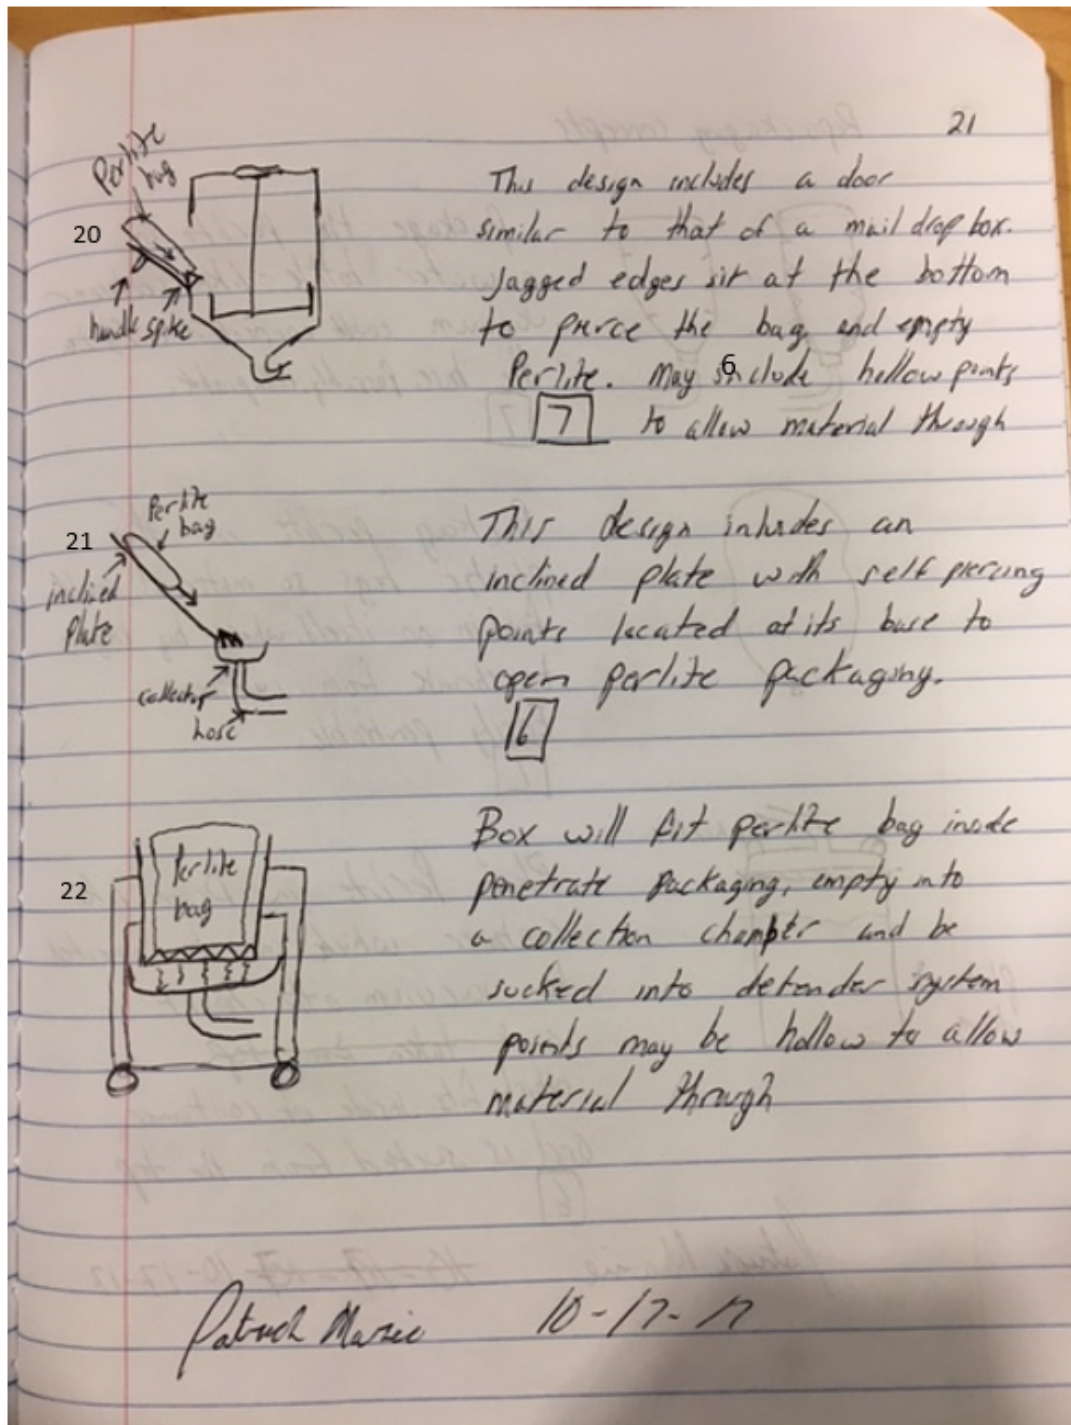 21
Perlite
bag
20
handle spike
This design includes a door
similar to that of a mail drop box.
Jagged edges sit at the bottom
to pierce the bag and empty
Perlite. May include hollow points
6
7 to allow material through
21
Perlite
bag
inclined
plate
collector
hose
This design inludes an
inclined plate with self piercing
points located at its base to
open perlite packaging.
6
22
Perlite
bag
Box will fit perlite bag inside
penetrate packaging, empty into
a collection chamber and be
sucked into defender system
points may be hollow to allow
material through
10-17-17